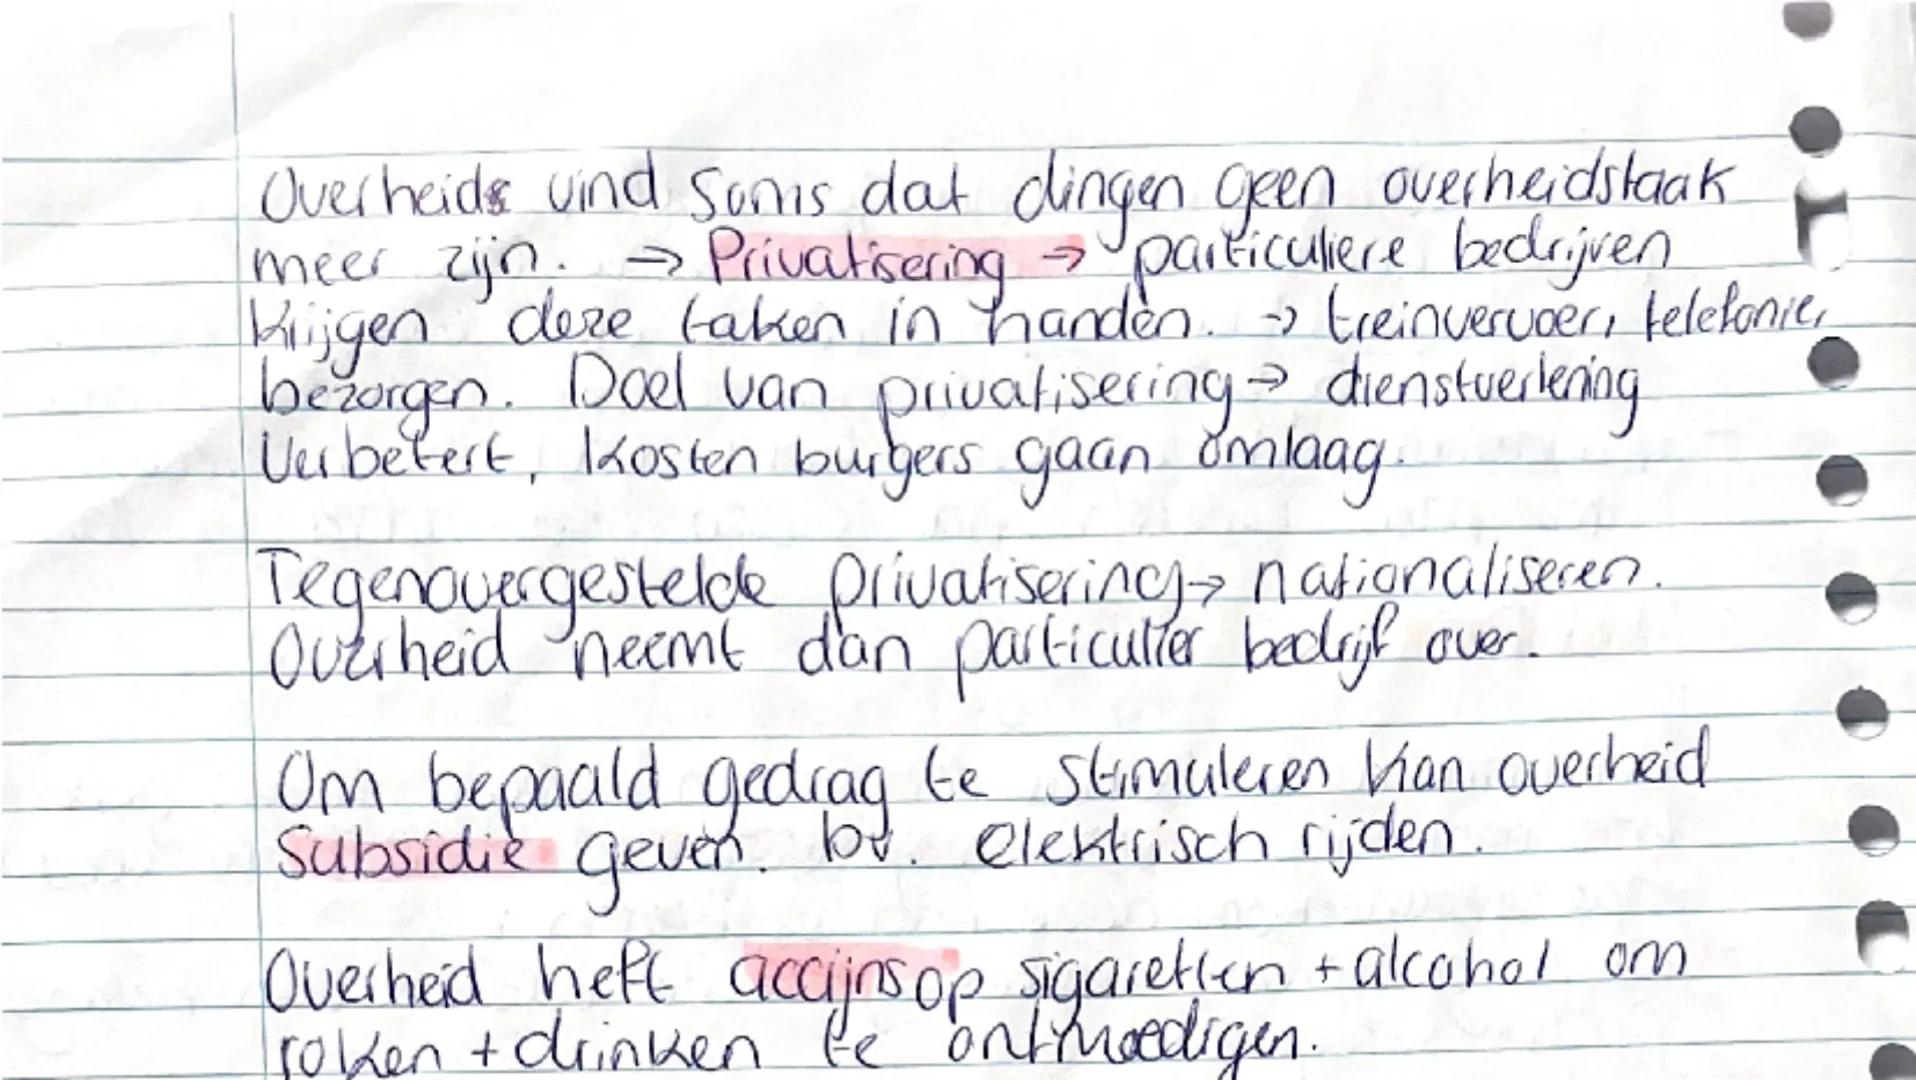 Overheid vind soms dat dingen geen overheidstaak
meer zijn. → Privatisering → particuliere bedrijven
krijgen deze taken in handen. → treinvervoer, telefonie,
bezorgen. Doel van privatisering → dienstverlening
verbetert, kosten burgers gaan omlaag.
Tegenovergestelde privatisering → nationaliseren.
Overheid neemt dan particulier bedrijf over.
Om bepaald gedrag te stimuleren kan overheid
subsidie geven. bv. elektrisch rijden.
Overheid heft accijns op sigaretten + alcohol om
roken + drinken te ontmoedigen.